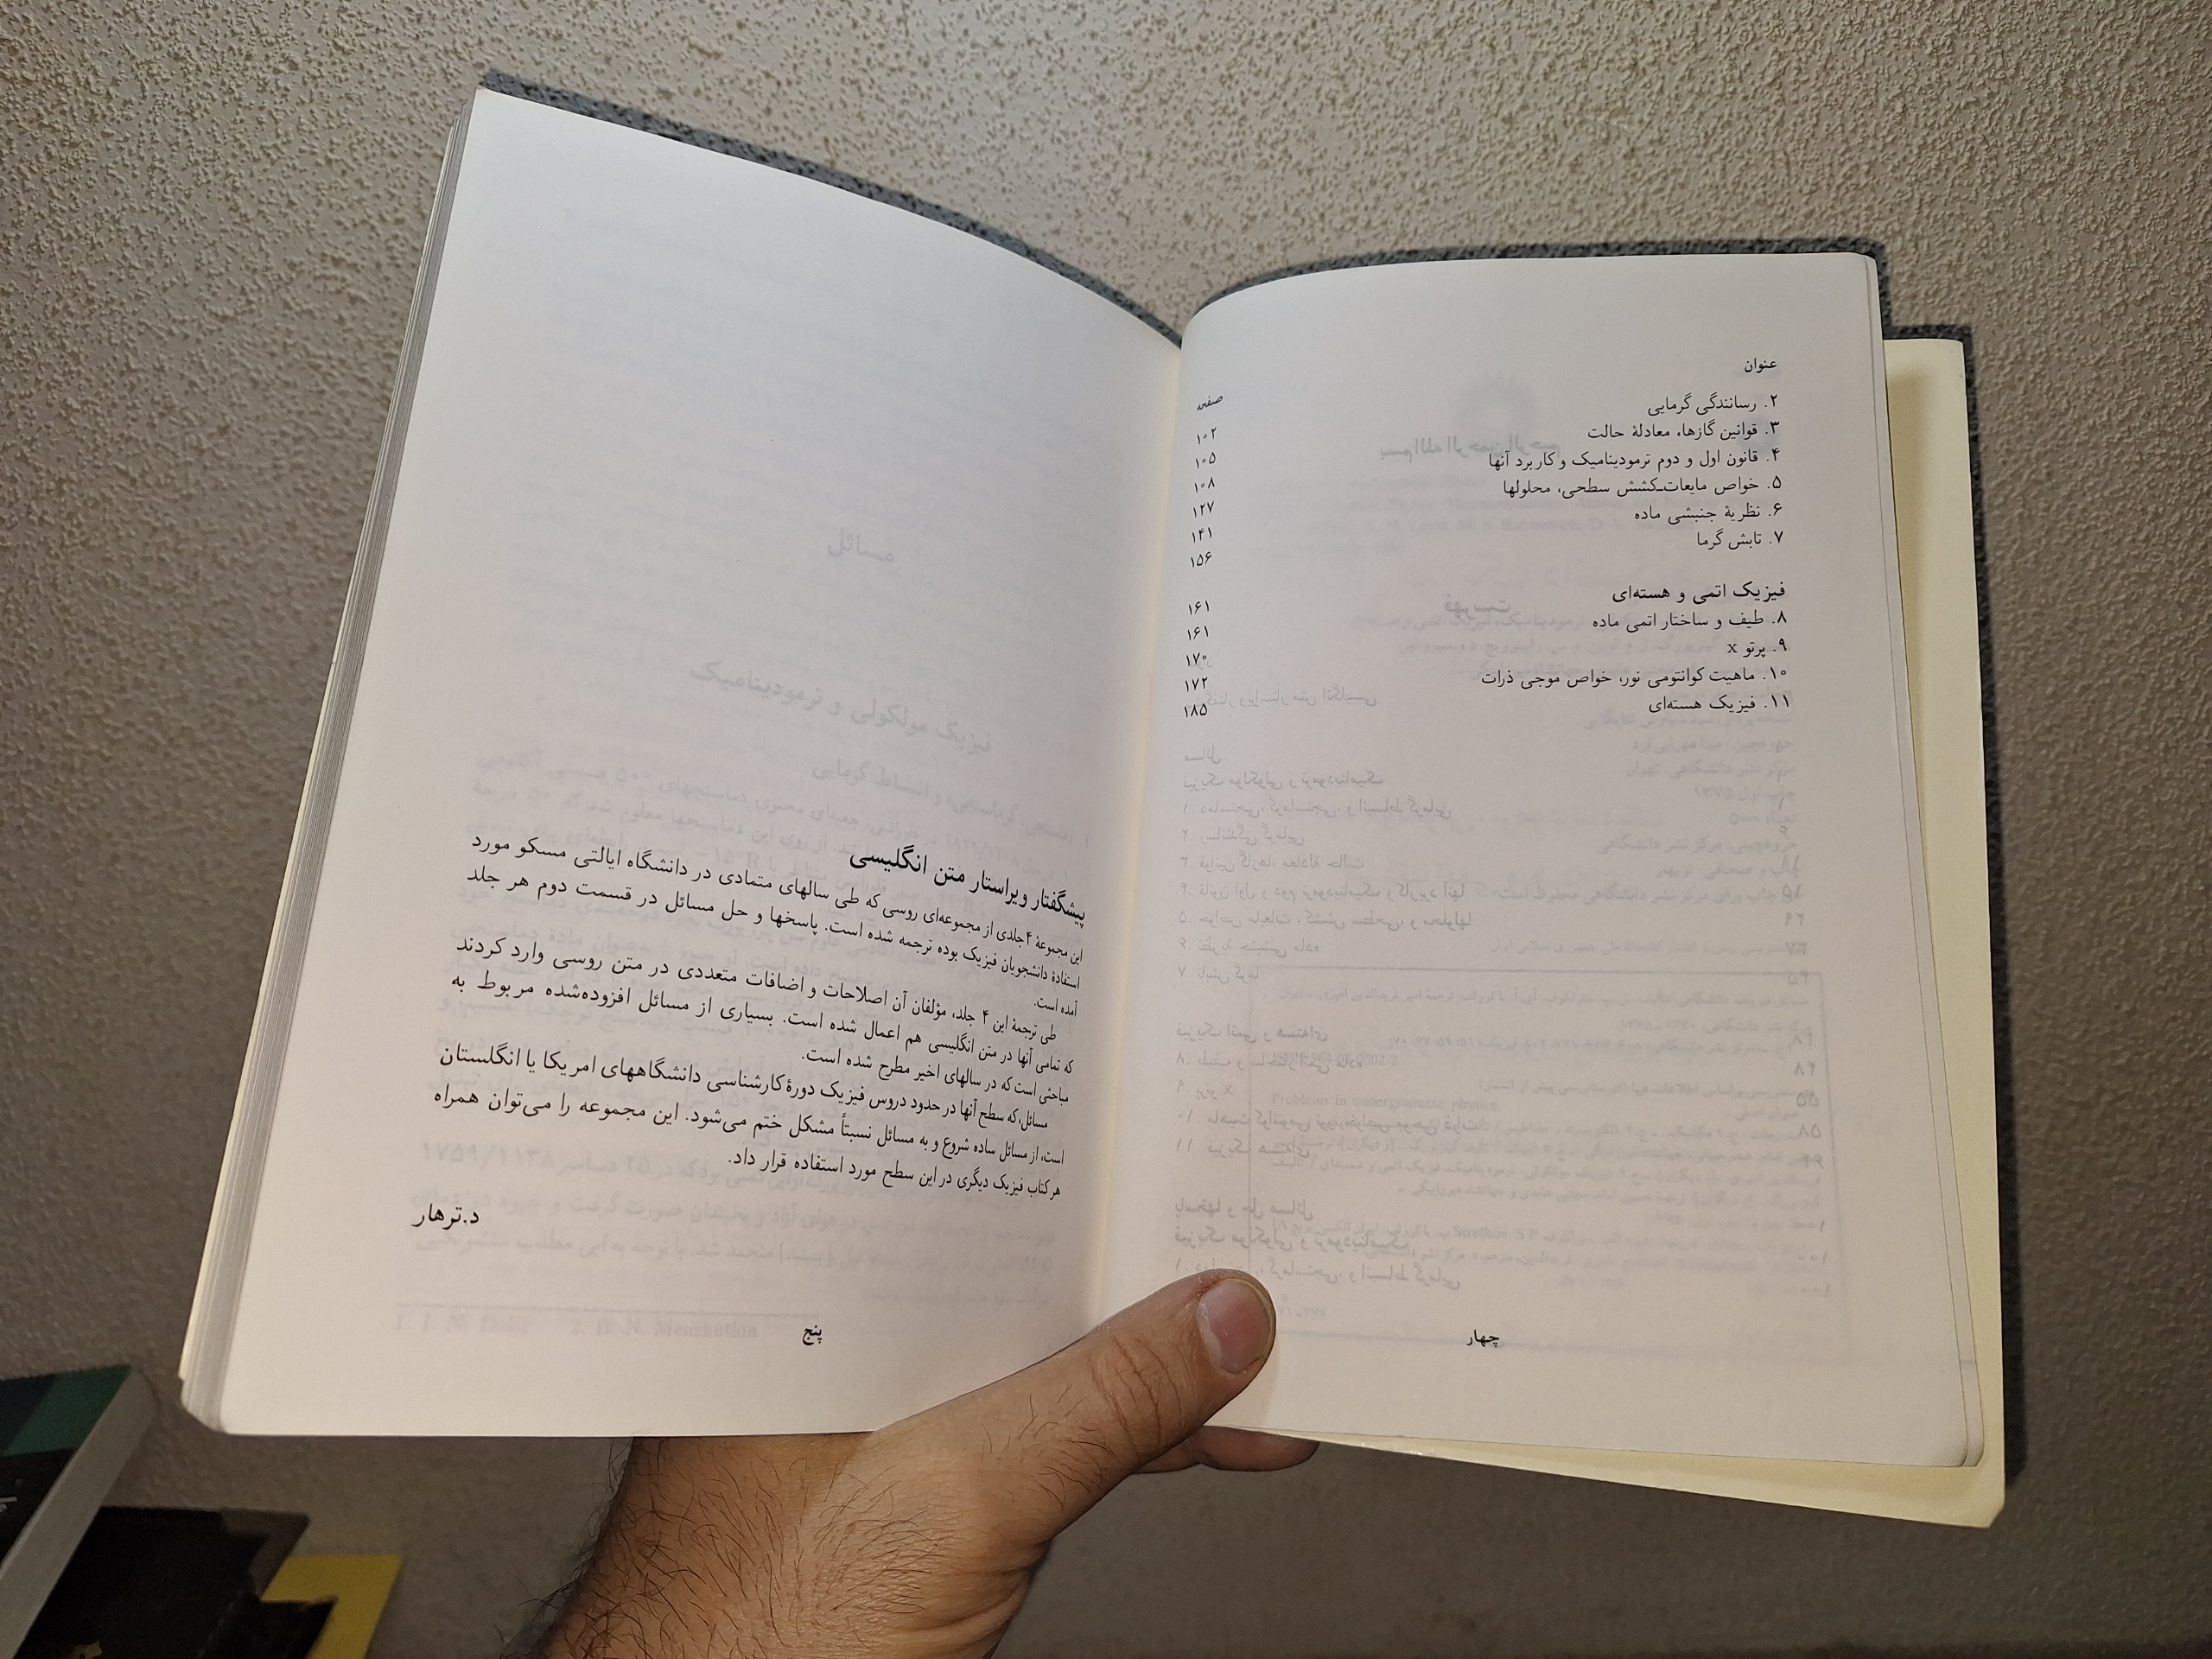 عنوان
صفحه
۲. رسانندگی گرمایی ۱۰۲
۳. قوانین گازها، معادلهٔ حالت ۱۰۵
۴. قانون اول و دوم ترمودینامیک و کاربرد آنها ۱۰۸
۵. خواص مایعات‌ـ‌کشش سطحی، محلولها ۱۲۷
۶. نظریهٔ جنبشی ماده ۱۴۱
۷. تابش گرما ۱۵۶
فیزیک اتمی و هسته‌ای ۱۶۱
۸. طیف و ساختار اتمی ماده ۱۶۱
۹. پرتو x ۱۷۰
۱۰. ماهیت کوانتومی نور، خواص موجی ذرات ۱۷۲
۱۱. فیزیک هسته‌ای ۱۸۵
چهار
پیشگفتار ویراستار متن انگلیسی
این مجموعهٔ ۴ جلدی از مجموعه‌ای روسی که طی سالهای متمادی در دانشگاه ایالتی مسکو مورد
استفادهٔ دانشجویان فیزیک بوده ترجمه شده است. پاسخها و حل مسائل در قسمت دوم هر جلد
آمده است.
طی ترجمهٔ این ۴ جلد، مؤلفان آن اصلاحات و اضافات متعددی در متن روسی وارد کردند
که تمامی آنها در متن انگلیسی هم اعمال شده است. بسیاری از مسائل افزوده‌شده مربوط به
مباحثی است که در سالهای اخیر مطرح شده است.
مسائل، که سطح آنها در حدود دروس فیزیک دورهٔ کارشناسی دانشگاههای امریکا یا انگلستان
است، از مسائل ساده شروع و به مسائل نسبتاً مشکل ختم می‌شود. این مجموعه را می‌توان همراه
هر کتاب فیزیک دیگری در این سطح مورد استفاده قرار داد.
د.ترهار
پنج